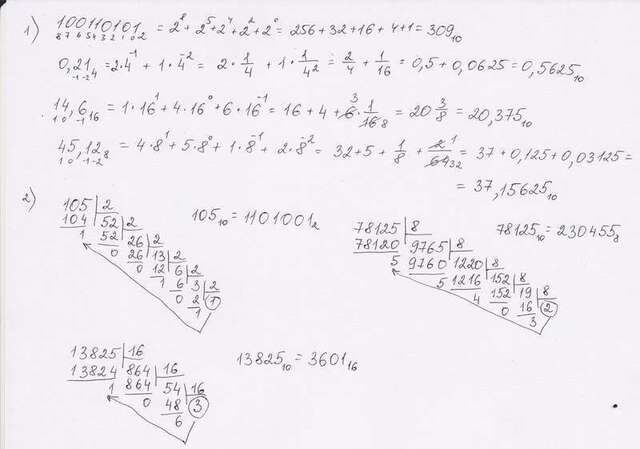 1) 100110101₂ = 2⁸ + 2⁵ + 2⁴ + 2² + 2⁰ = 256 + 32 + 16 + 4 + 1 = 309₁₀
8 7 6 5 4 3 2 1 0
0,21₄ = 2·4⁻¹ + 1·4⁻² = 2·1/4 + 1·1/4² = 2/4 + 1/16 = 0,5 + 0,0625 = 0,5625₁₀
-1 -2
14,6₁₆ = 1·16¹ + 4·16⁰ + 6·16⁻¹ = 16 + 4 + 6 3·1/16 8 = 20 3/8 = 20,375₁₀
1 0 -1
45,12₈ = 4·8¹ + 5·8⁰ + 1·8⁻¹ + 2·8⁻² = 32 + 5 + 1/8 + 2 1/64 32 = 37 + 0,125 + 0,03125 =
1 0 -1 -2
= 37,15625₁₀
2) 105 | 2
104 52 | 2
1 52 26 | 2
0 26 13 | 2
0 12 6 | 2
1 6 3 | 2
0 2 1
1
105₁₀ = 1101001₂
78125 | 8
78120 9765 | 8
5 9760 1220 | 8
5 1216 152 | 8
4 152 19 | 8
0 16 2
3
78125₁₀ = 230455₈
13825 | 16
13824 864 | 16
1 864 54 | 16
0 48 3
6
13825₁₀ = 3601₁₆